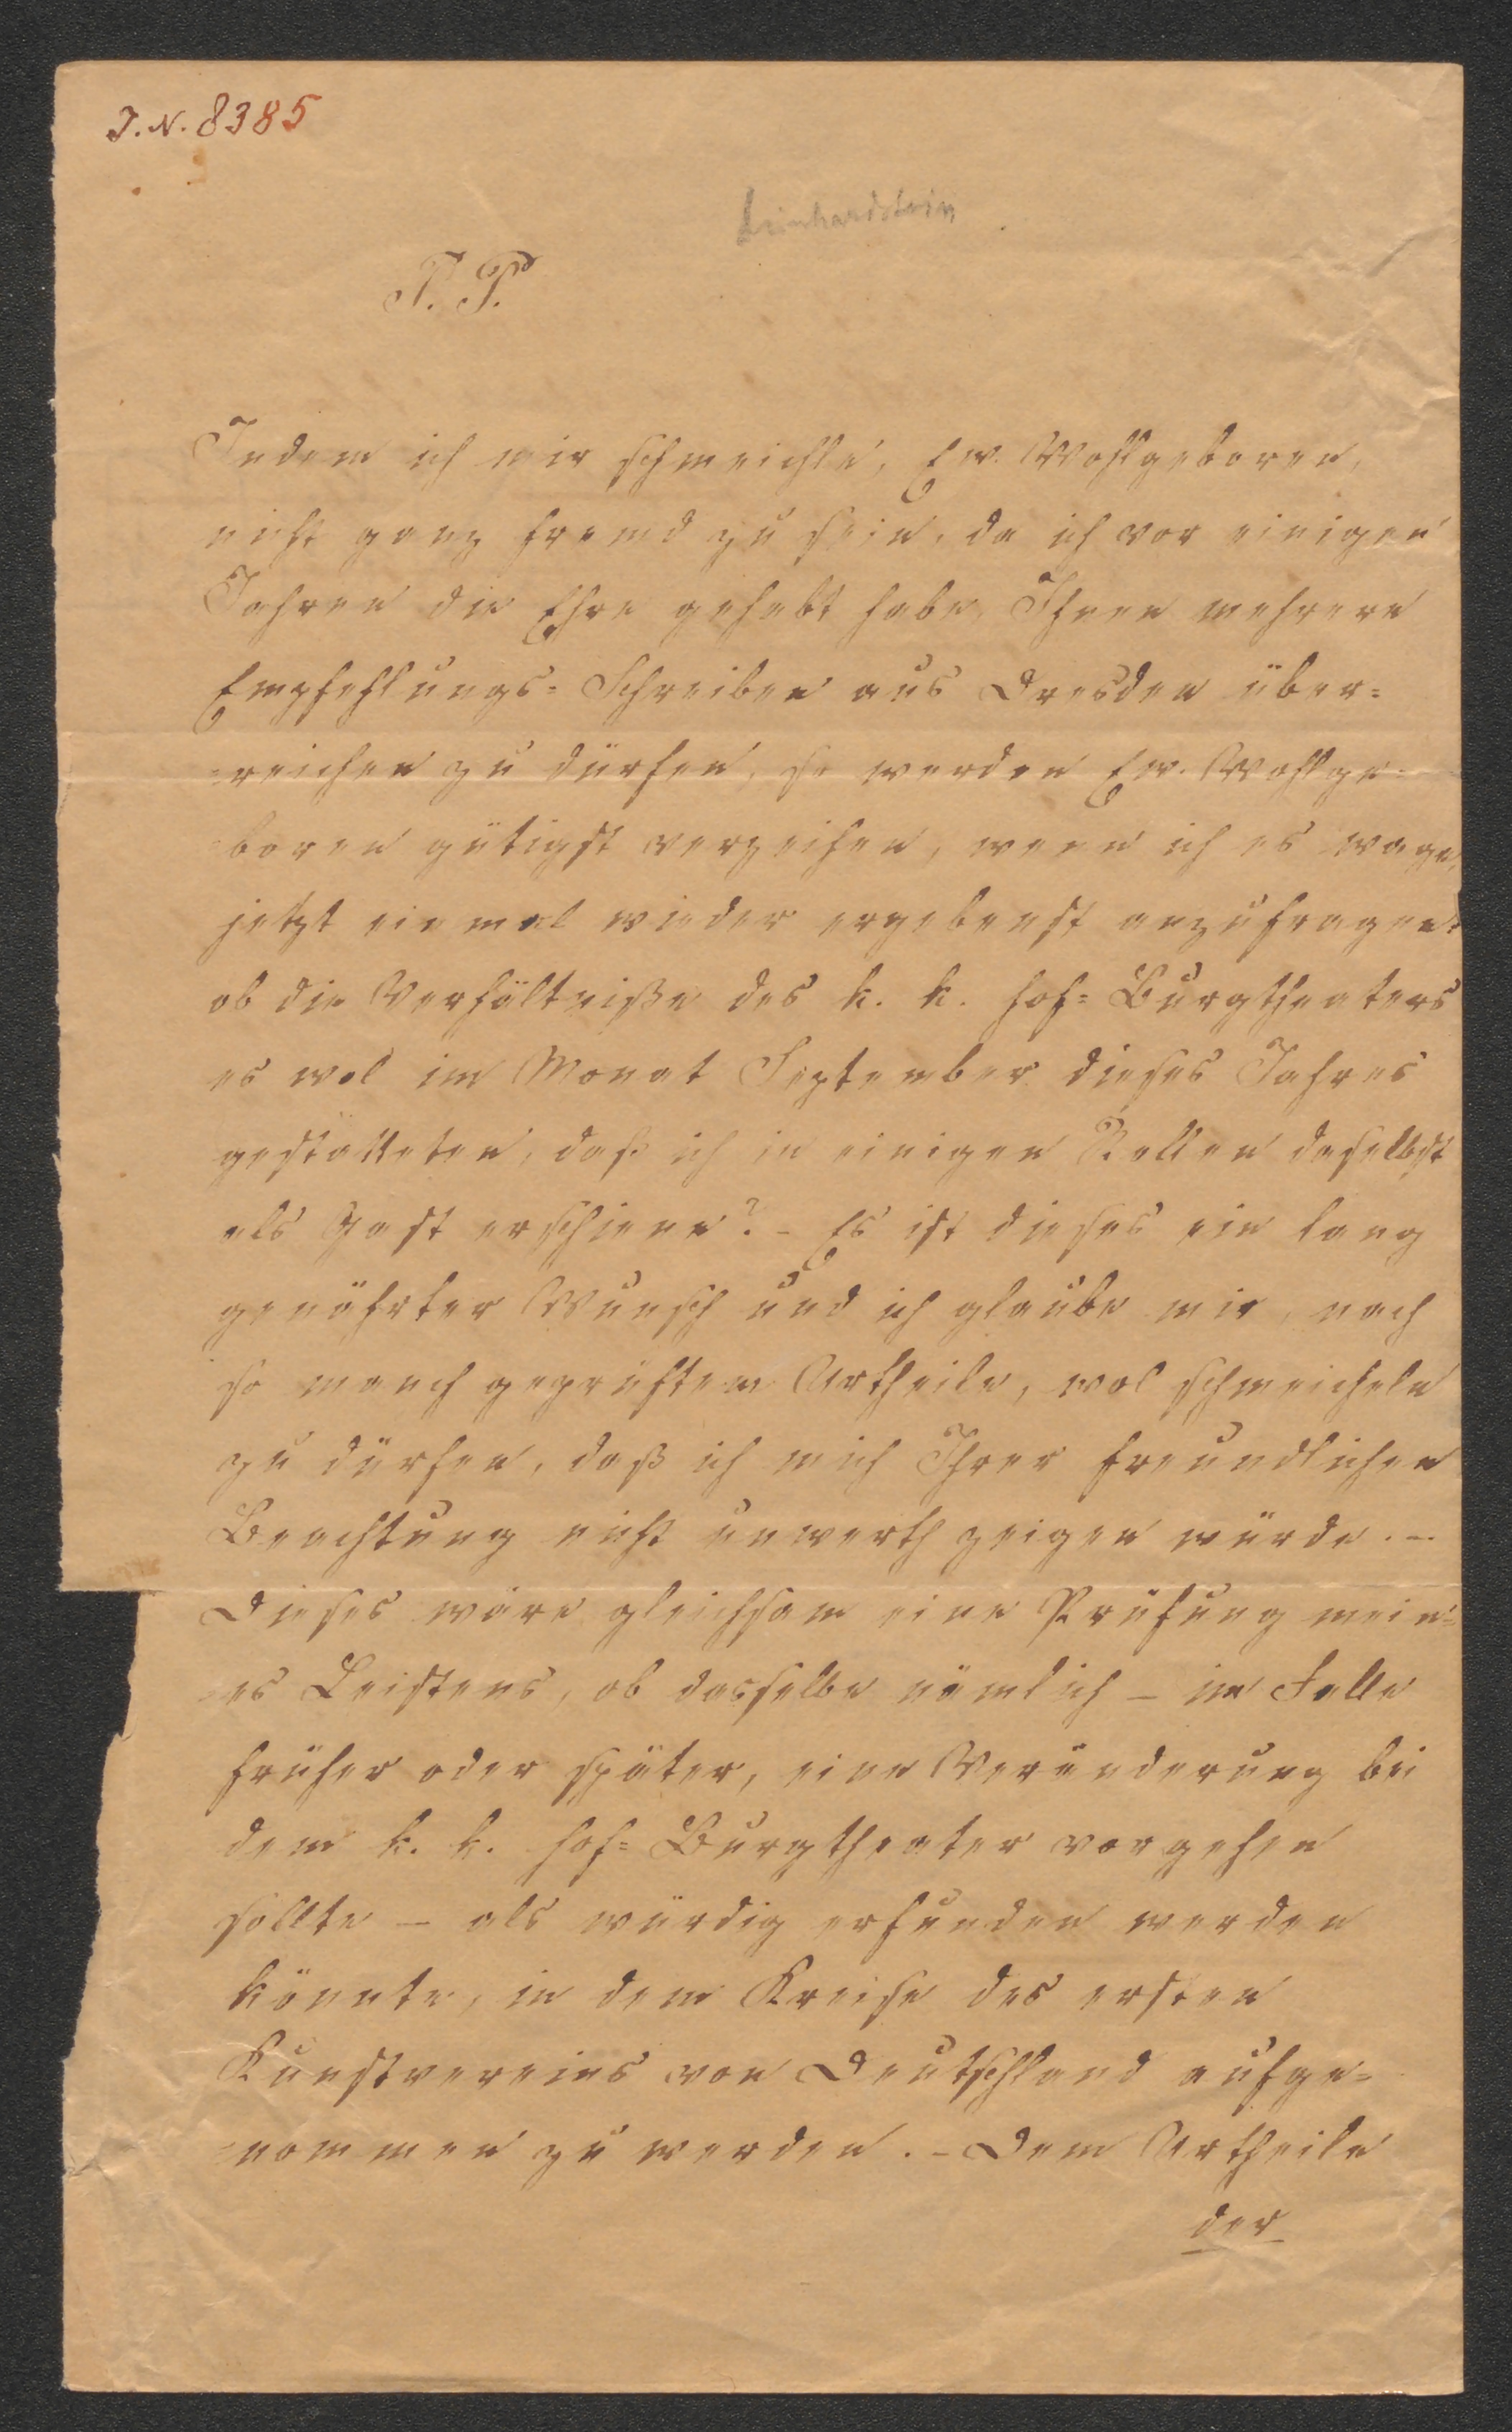 J.N. 8385
Deinhardstein
P. P.
Indem ich mir schmeichle, Ew. Wohlgeboren,
nicht ganz fremd zu sein, da ich vor einigen
Jahren die Ehre gehabt habe, Ihnen mehrere
Empfehlungs- Schreiben aus Dresden über-
reichen zu dürfen, so werden Ew. Wohlge-
boren gütigst verzeihen, wenn ich es wage,
jetzt einmal wieder ergebenst anzufragen:
ob die Verhältniße des k. k. Hof- Burgtheaters
es wol im Monat September dieses Jahres
gestatteten, daß ich in einigen Rollen daselbst
als Gast erschiene? - Es ist dieses ein lang
genährter Wunsch und ich glaube mir, nach
so manch geprüftem Urtheile, wol schmeicheln
zu dürfen, daß ich mich Ihrer freundlichen
Beachtung nicht unwerth zeigen würde. -
Dieses wäre gleichsam eine Prüfung mein-
es Leistens, ob dasselbe nämlich - im Falle
früher oder später, eine Veränderung bei
dem k. k. Hof- Burgtheater vorgehen
sollte - als würdig erfunden werden
könnte, in dem Kreise des ersten
Kunstvereins von Deutschland aufge-
nommen zu werden. - Dem Urtheile
der